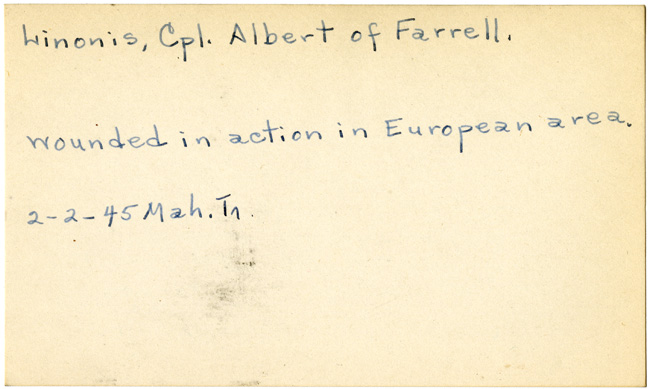 Linonis, Cpl. Albert of Farrell.
wounded in action in European area.
2-2-45 Mah. Tr.